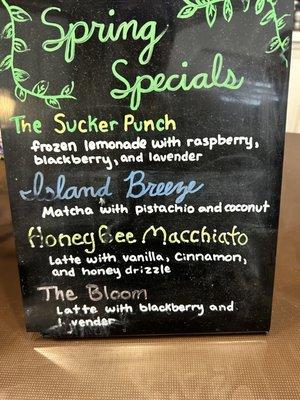 Spring
Specials
The Sucker Punch
frozen lemonade with raspberry,
blackberry, and lavender
Island Breeze
Matcha with pistachio and coconut
Honey Bee Macchiato
Latte with vanilla, cinnamon,
and honey drizzle
The Bloom
Latte with blackberry and
lavender